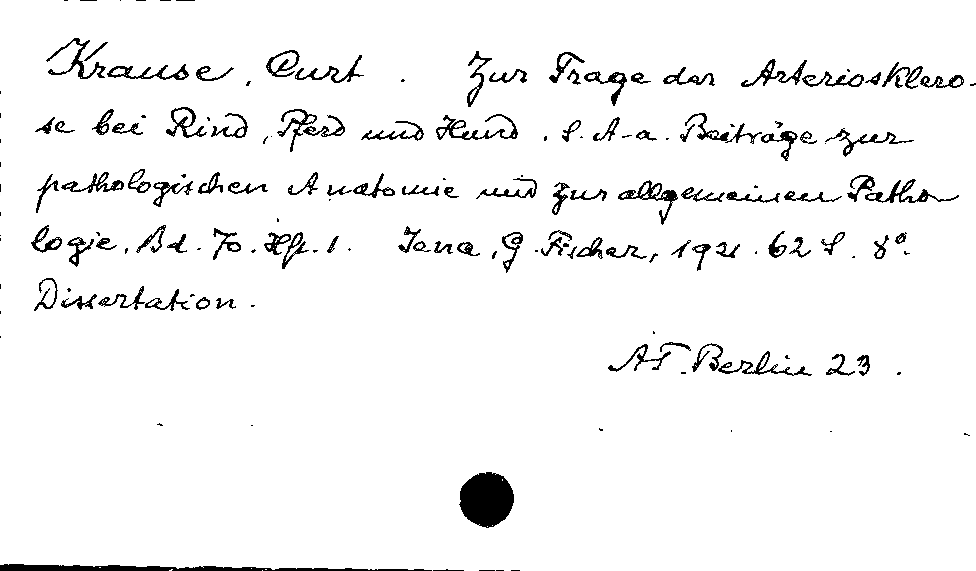 Krause, Curt. Zur Frage der Arteriosklero-
se bei Rind, Pferd und Hund. S. A-a. Beiträge zur
pathologischen Anatomie und zur allgemeinen Patho
logie, Bd. 70. Hft. 1. Jena, G. Fischer, 1921. 62 S. 8°.
Dissertation.
AT. Berlin 23.